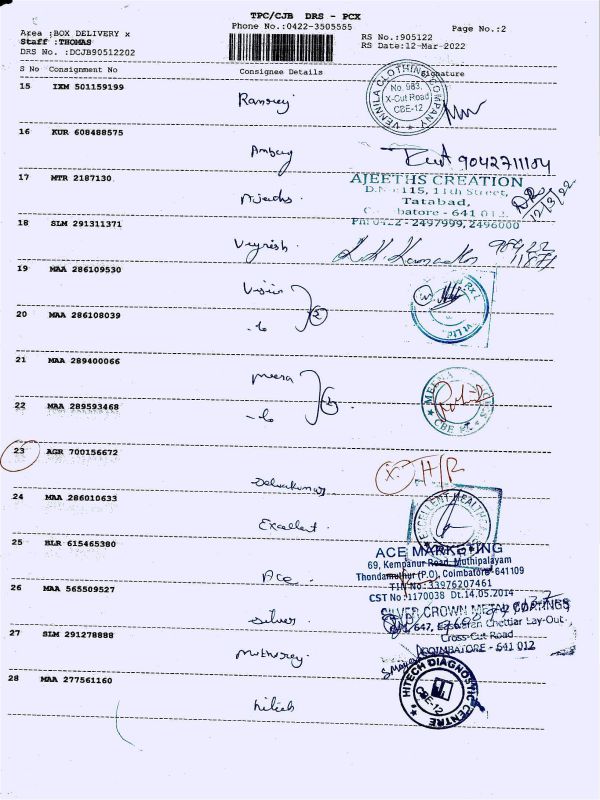 TPC/CJB DRS - PCX
Phone No.:0422-3505555
Page No.:2
Area :BOX DELIVERY x
Staff :THOMAS
DRS No. :DCJB90512202
RS No.:905122
RS Date:12-Mar-2022
S No Consignment No Consignee Details Signature
15 IXM 501159199
VENNILA CLOTHING COMPANY
No. 983,
X-Cut Road
CBE-12
16 KUR 608488575
9042711104
17 MTR 2187130
AJEETHS CREATION
D.No: 115, 11th Street,
Tatabad,
Coimbatore - 641 012.
Ph: 0422 - 2497999, 2496000
12/3/22
18 SLM 291311371
19 MAA 286109530
20 MAA 286108039
21 MAA 289400066
meera
22 MAA 289593468
CBE
23 AGR 700156672
Selvakumar
X H/R
24 MAA 286010633
Excellent.
EXCELLENT HEALTHCARE
25 BLR 615465380
Ace.
ACE MARKETING
69, Kempanur Road, Muthipalayam
Thondamuthur (P.O), Coimbatore-641109
TIN No: 33976207461
CST No :1170038 Dt.14.05.2014
26 MAA 565509527
Silver.
SILVER CROWN METAL COATINGS
647, Easwaran Chettiar Lay-Out
Cross-Cut Road
COIMBATORE - 641 012
27 SLM 291278888
28 MAA 277561160
hitech
HITECH DIAGNOSTIC CENTRE
CBE-12